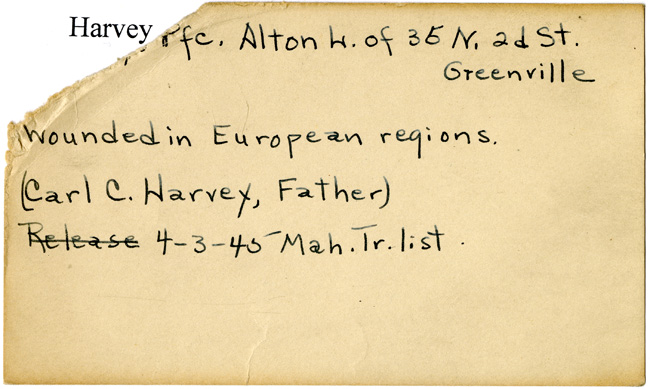 Harvey, Pfc. Alton L. of 35 N. 2d St.
Greenville
Wounded in European regions.
(Carl C. Harvey, Father)
Release 4-3-45 Mah. Tr. list.